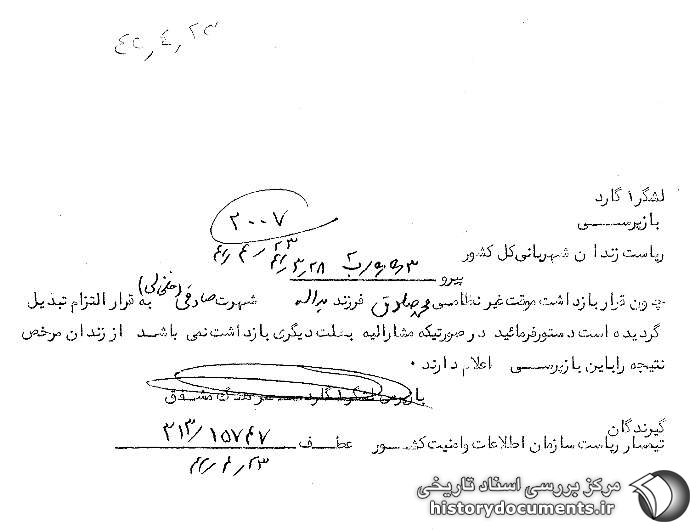 ۴۲٫۴٫۲۳
لشگر ۱ گارد
بازپرسی
۲۰۰۷
ریاست زندان شهربانی کل کشور
۴۲٫۴٫۲۳
پیرو
چون قرار بازداشت موقت غیر نظامی محمدصادق فرزند یداله شهرت صادقی (خلخالی) به قرار التزام تبدیل
گردیده است دستور فرمائید در صورتیکه مشارالیه بعلت دیگری بازداشت نمی باشد از زندان مرخص
نتیجه را باین بازپرسی اعلام دارند.
بازپرس لشگر ۱ گارد سرهنگ
گیرندگان
تیمسار ریاست سازمان اطلاعات و امنیت کشور عطف ۳۱۳/۱۵۷۴۷
۴۲٫۴٫۲۳
مرکز بررسی اسناد تاریخی
historydocuments.ir